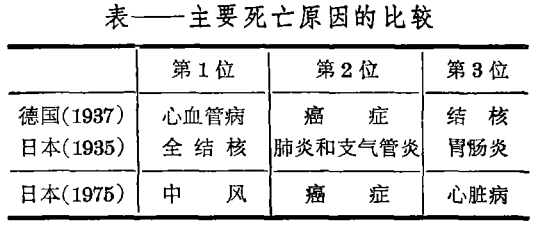 表——主要死亡原因的比较
第1位 第2位 第3位
德国(1937) 心血管病 癌症 结核
日本(1935) 全结核 肺炎和支气管炎 胃肠炎
日本(1975) 中风 癌症 心脏病